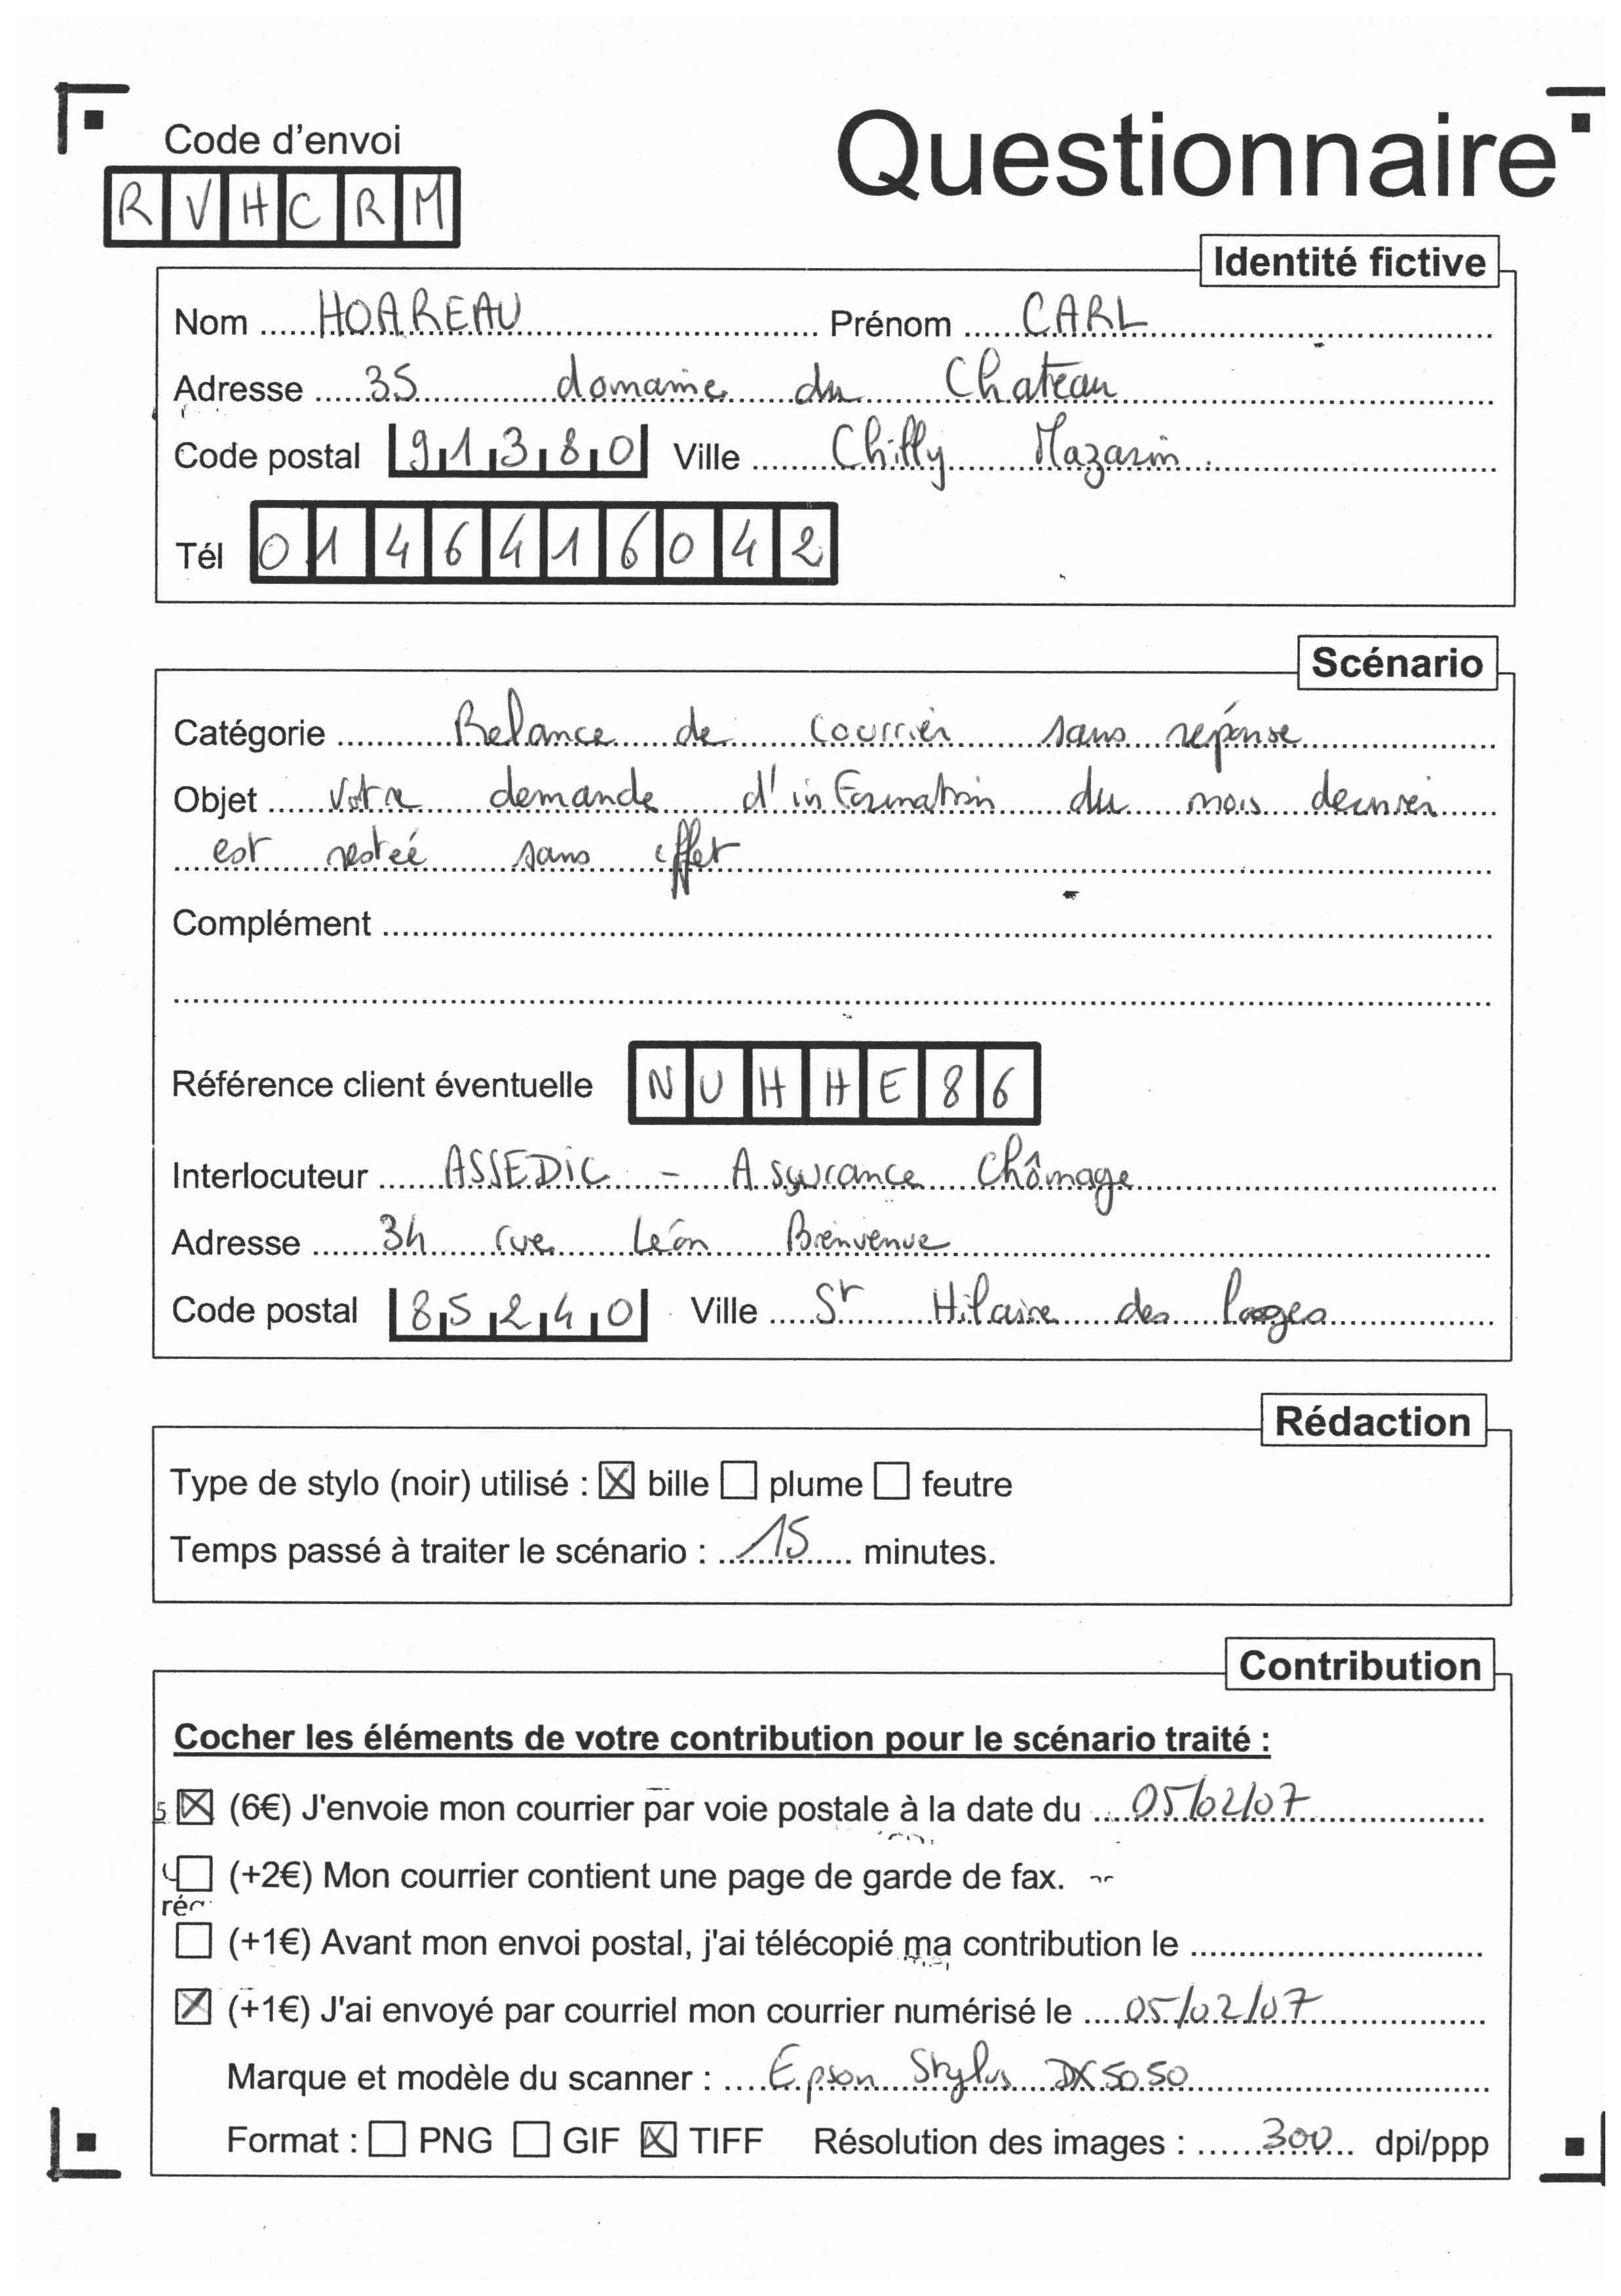 Code d'envoi
Questionnaire
R V H C R M
Identité fictive
Nom HOAREAU Prénom CARL
Adresse 35 domaine du Chateau
Code postal 91380 Ville Chilly Mazarin
Tél 0146416042
Scénario
Catégorie Relance de courrier sans réponse
Objet Votre demande d'information du mois dernier
est restée sans effet
Complément
Référence client éventuelle NUHHE86
Interlocuteur ASSEDIC - Assurance Chômage
Adresse 34 rue Léon Bienvenue
Code postal 85240 Ville St Hilaire des loges
Rédaction
Type de stylo (noir) utilisé : ☒ bille ☐ plume ☐ feutre
Temps passé à traiter le scénario : 15 minutes.
Contribution
Cocher les éléments de votre contribution pour le scénario traité :
☒ (6€) J'envoie mon courrier par voie postale à la date du 05/02/07
☐ (+2€) Mon courrier contient une page de garde de fax.
☐ (+1€) Avant mon envoi postal, j'ai télécopié ma contribution le
☒ (+1€) J'ai envoyé par courriel mon courrier numérisé le 05/02/07
Marque et modèle du scanner : Epson Stylus DX5050
Format : ☐ PNG ☐ GIF ☒ TIFF Résolution des images : 300 dpi/ppp